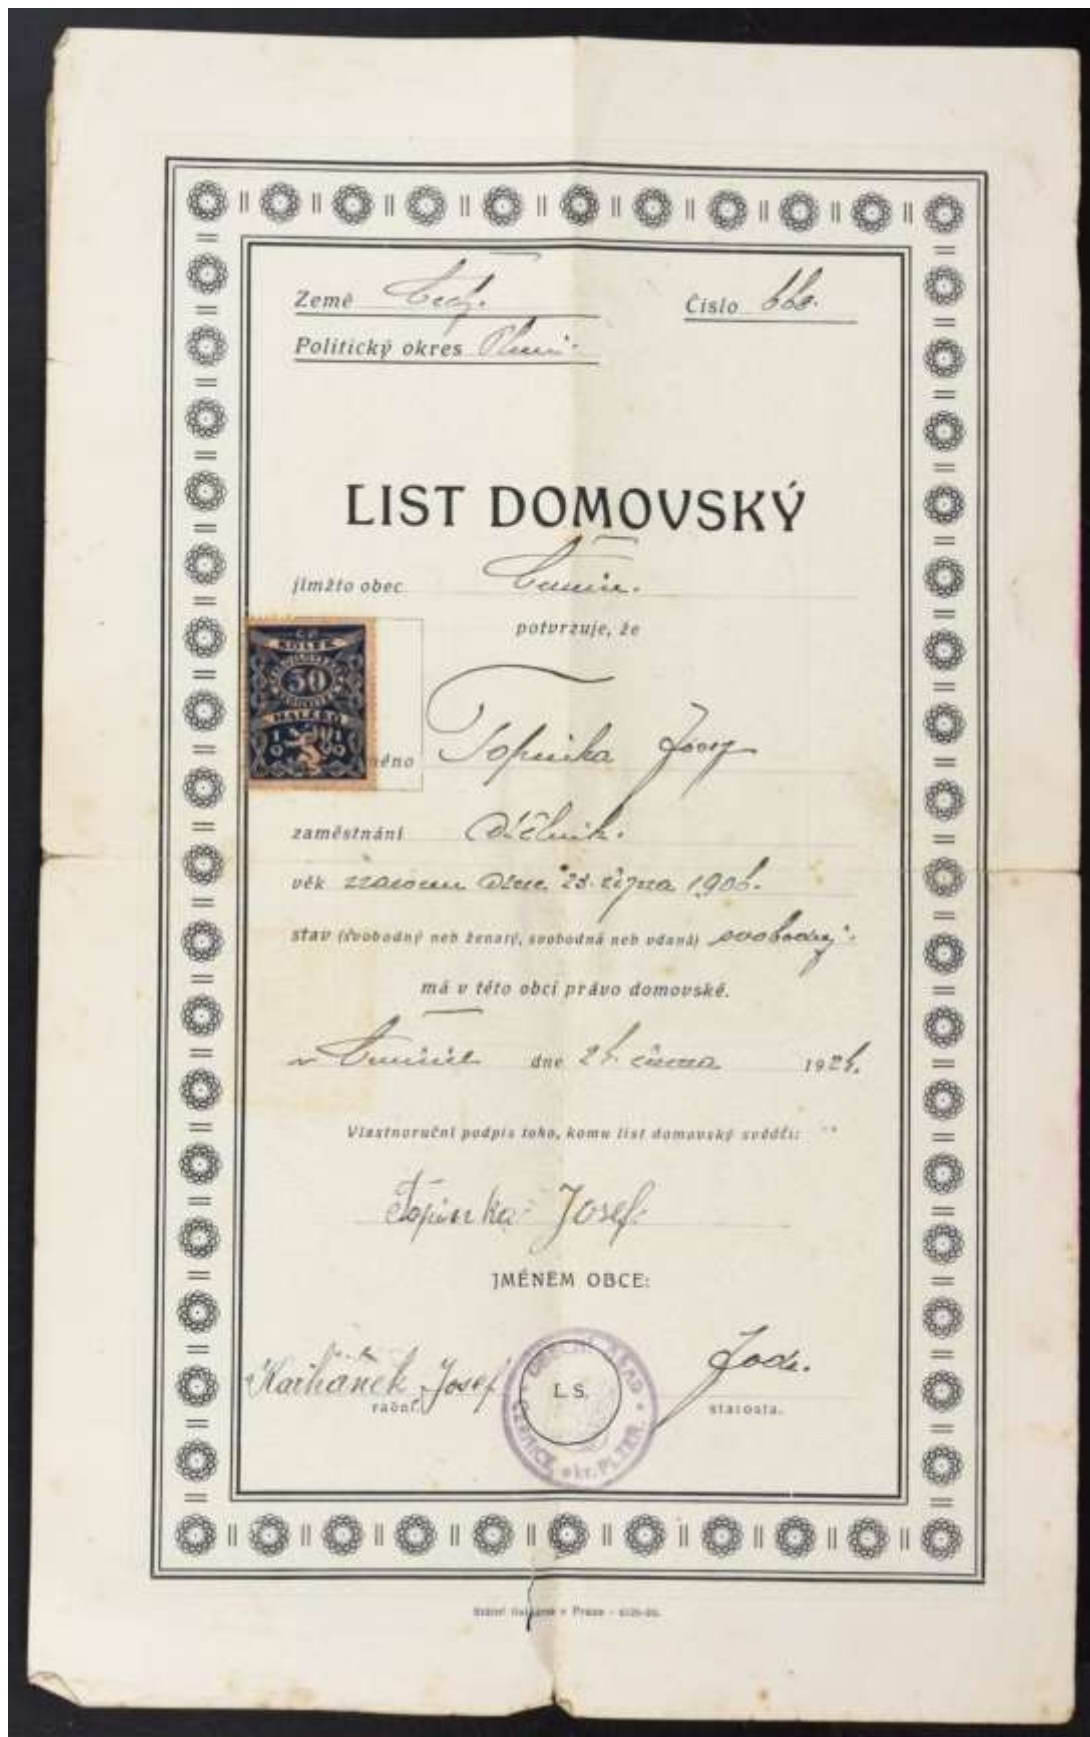 Země Čechy. Číslo 66e.
Politický okres Plzeň.
LIST DOMOVSKÝ
jímžto obec Černice.
potvrzuje, že
KOLEK
50
HALÉŘŮ
1 1
9 9
méno Topinka Josef
zaměstnání dělník.
věk narozen dne 28. října 1906.
stav (svobodný neb ženatý, svobodná neb vdaná) svobodný.
má v této obci právo domovské.
v Černicích dne 26. června 1926.
Vlastnoruční podpis toho, komu list domovský svědčí:
Topinka Josef.
JMÉNEM OBCE:
Josef
radní. starosta.
L. S.
OBECNÍ ÚŘAD
ČERNICE, okr. PLZEŇ.
Státní tiskárna v Praze